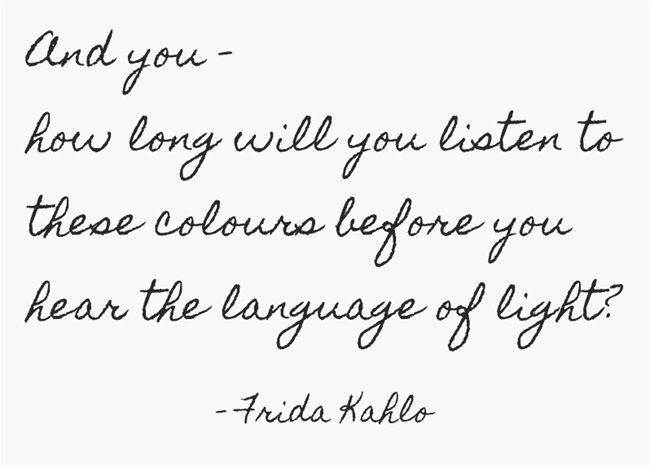 And you -
how long will you listen to
these colours before you
hear the language of light?
-Frida Kahlo